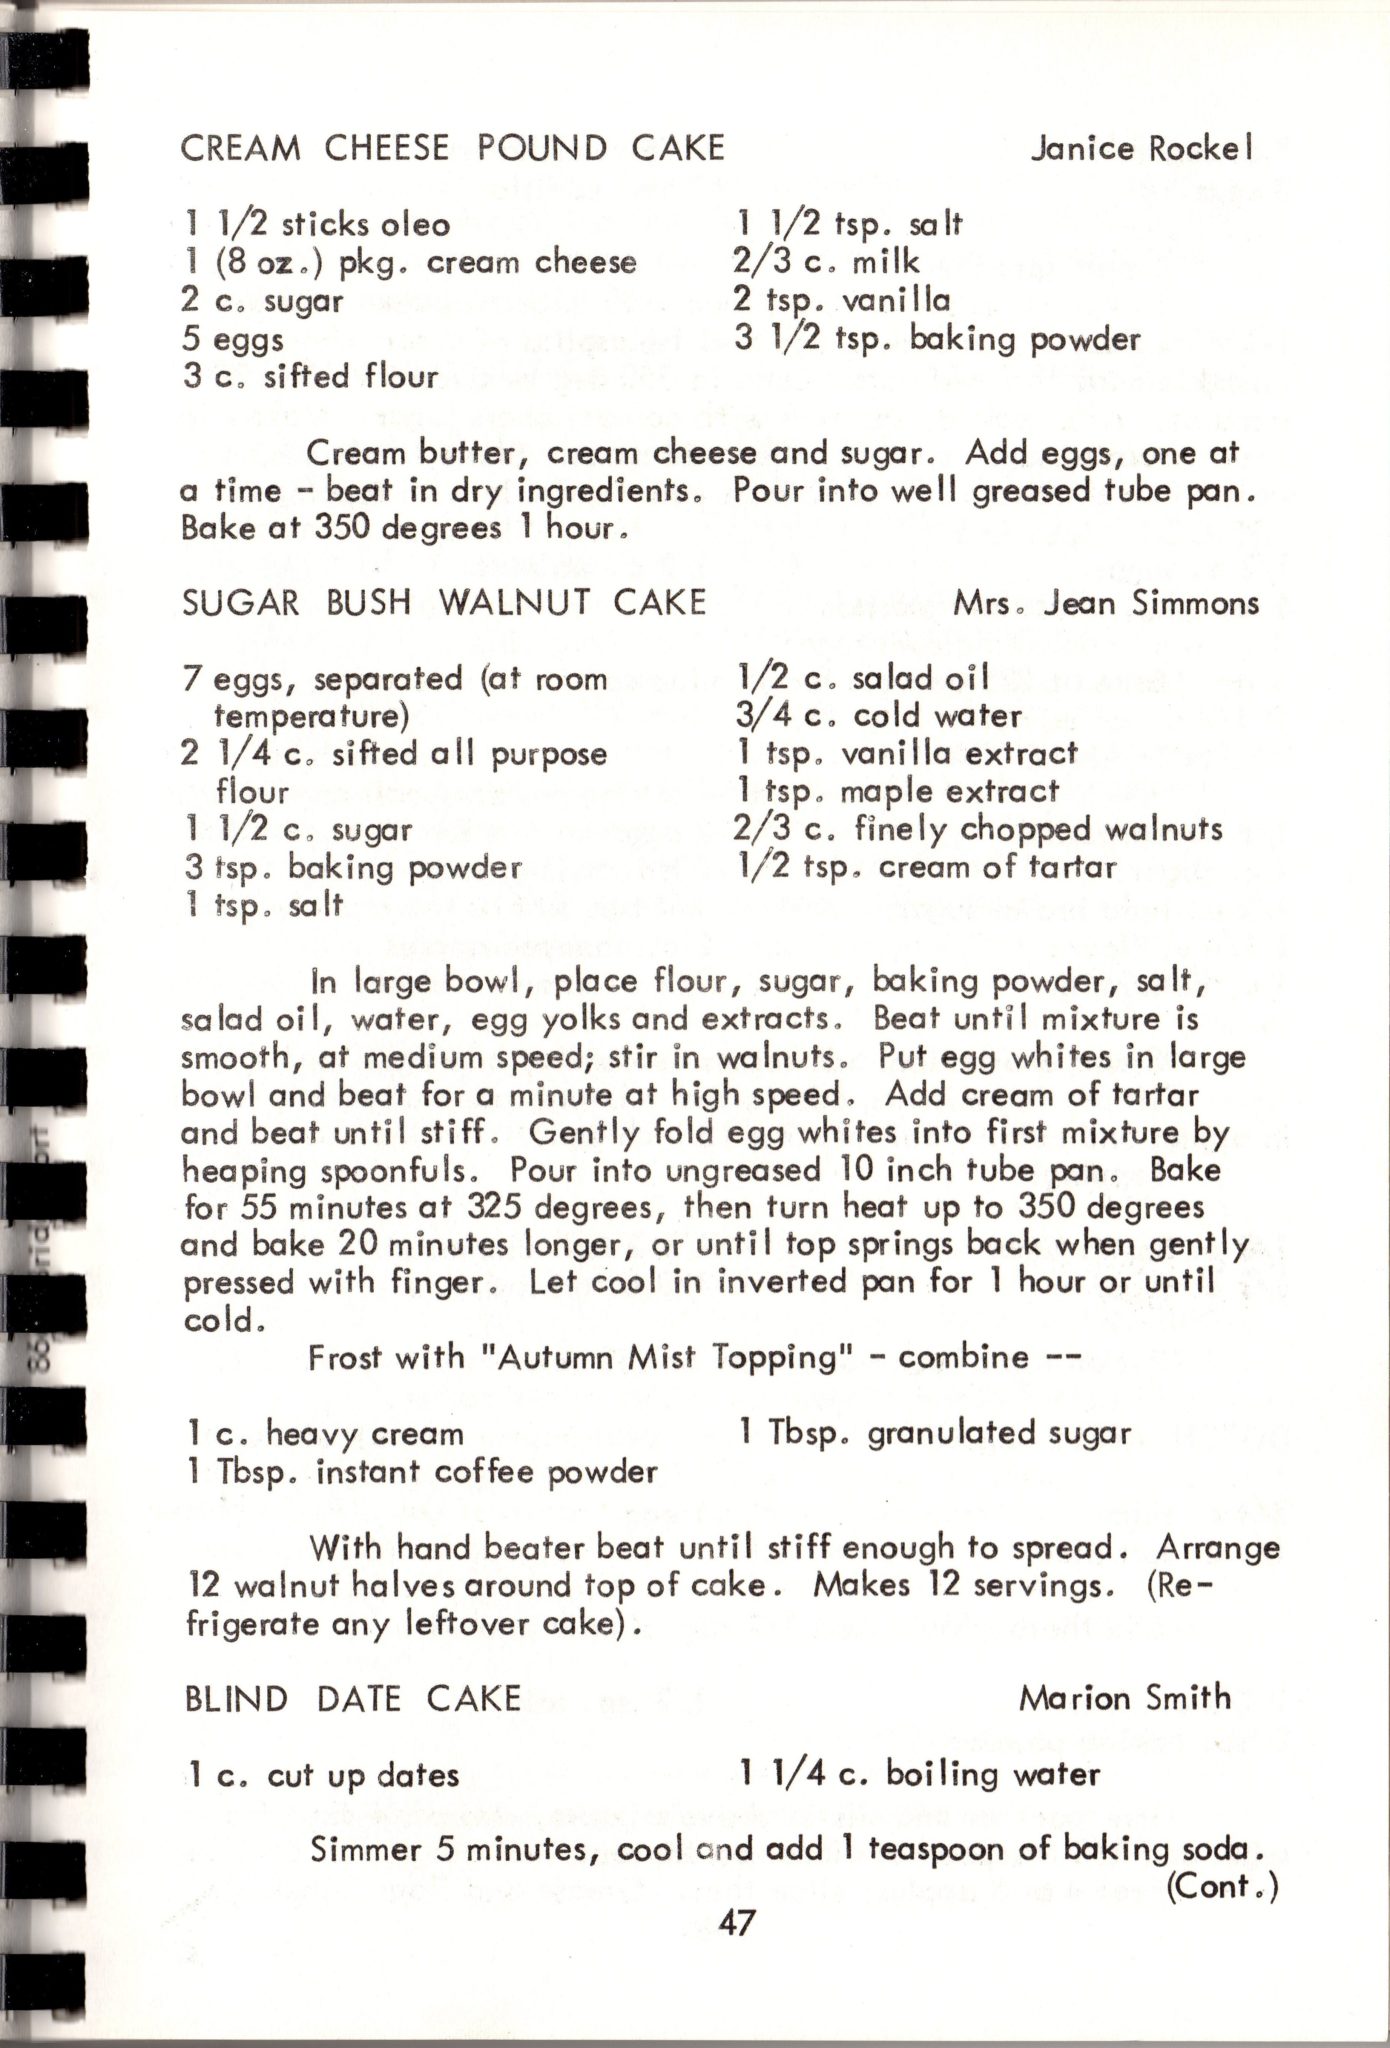 CREAM CHEESE POUND CAKE Janice Rockel
1 1/2 sticks oleo 1 1/2 tsp. salt
1 (8 oz.) pkg. cream cheese 2/3 c. milk
2 c. sugar 2 tsp. vanilla
5 eggs 3 1/2 tsp. baking powder
3 c. sifted flour
Cream butter, cream cheese and sugar. Add eggs, one at
a time - beat in dry ingredients. Pour into well greased tube pan.
Bake at 350 degrees 1 hour.
SUGAR BUSH WALNUT CAKE Mrs. Jean Simmons
7 eggs, separated (at room 1/2 c. salad oil
temperature) 3/4 c. cold water
2 1/4 c. sifted all purpose 1 tsp. vanilla extract
flour 1 tsp. maple extract
1 1/2 c. sugar 2/3 c. finely chopped walnuts
3 tsp. baking powder 1/2 tsp. cream of tartar
1 tsp. salt
In large bowl, place flour, sugar, baking powder, salt,
salad oil, water, egg yolks and extracts. Beat until mixture is
smooth, at medium speed; stir in walnuts. Put egg whites in large
bowl and beat for a minute at high speed. Add cream of tartar
and beat until stiff. Gently fold egg whites into first mixture by
heaping spoonfuls. Pour into ungreased 10 inch tube pan. Bake
for 55 minutes at 325 degrees, then turn heat up to 350 degrees
and bake 20 minutes longer, or until top springs back when gently
pressed with finger. Let cool in inverted pan for 1 hour or until
cold.
Frost with "Autumn Mist Topping" - combine --
1 c. heavy cream 1 Tbsp. granulated sugar
1 Tbsp. instant coffee powder
With hand beater beat until stiff enough to spread. Arrange
12 walnut halves around top of cake. Makes 12 servings. (Re-
frigerate any leftover cake).
BLIND DATE CAKE Marion Smith
1 c. cut up dates 1 1/4 c. boiling water
Simmer 5 minutes, cool and add 1 teaspoon of baking soda.
(Cont.)
47